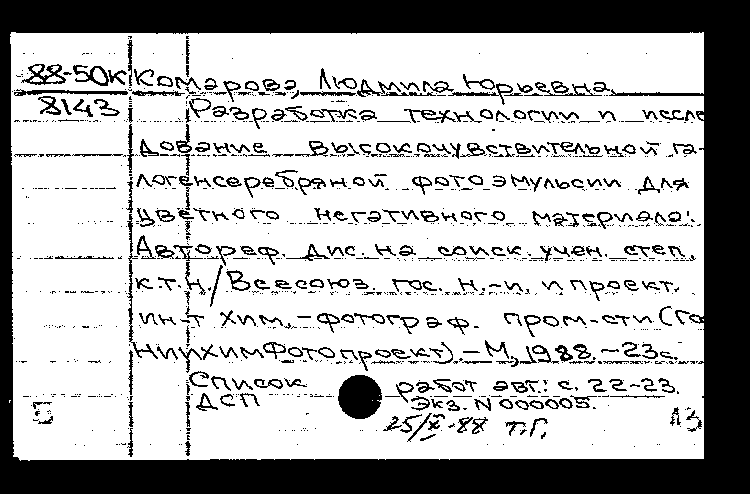 88-50к Комарова, Людмила Юрьевна
8143 Разработка технологии и иссле
дование высокочувствительной га-
логенсеребряной фотоэмульсии для
цветного негативного материала:
Автореф. дис. на соиск. учен. степ.
к.т.н./ Всесоюз. гос. н.-и. и проект.
ин-т хим.-фотограф. пром-сти (Го
НИИхимФотопроект).-М, 1988.-23с.
Список работ авт.: с. 22-23.
ДСП Экз. N 000005.
25/X-88 Т.Г.